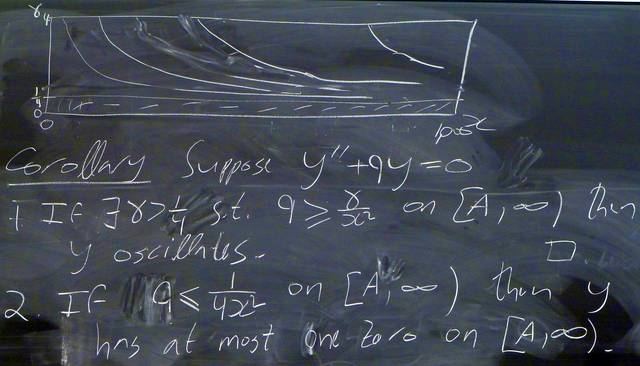 γ 4
1/4
0
0
1000 x
Corollary Suppose y'' + qy = 0
1. If ∃ γ > 1/4 s.t. q ≥ γ/x² on [A, ∞) then
y oscillates. □.
2. If q ≤ 1/4x² on [A, ∞) then y
has at most one zero on [A, ∞).